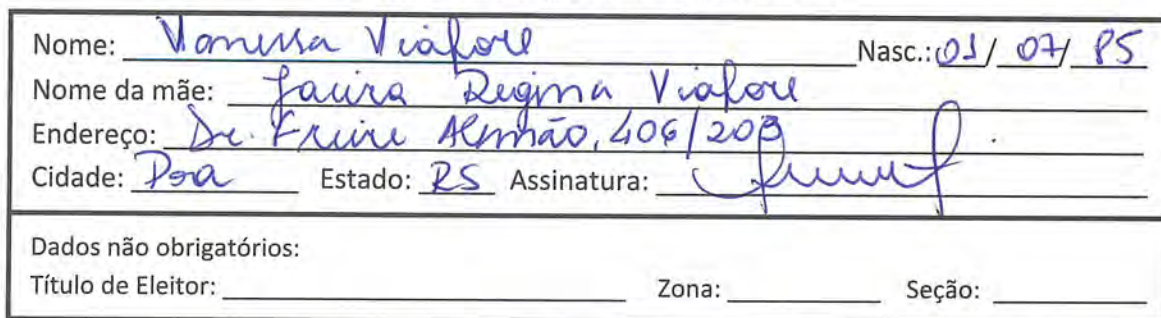 Nome: Vanessa Viafore Nasc.: 01/ 07/ 85
Nome da mãe: Jacira Regina Viafore
Endereço: Dr. Freire Alemão, 406/203
Cidade: Poa Estado: RS Assinatura:
Dados não obrigatórios:
Título de Eleitor: Zona: Seção: